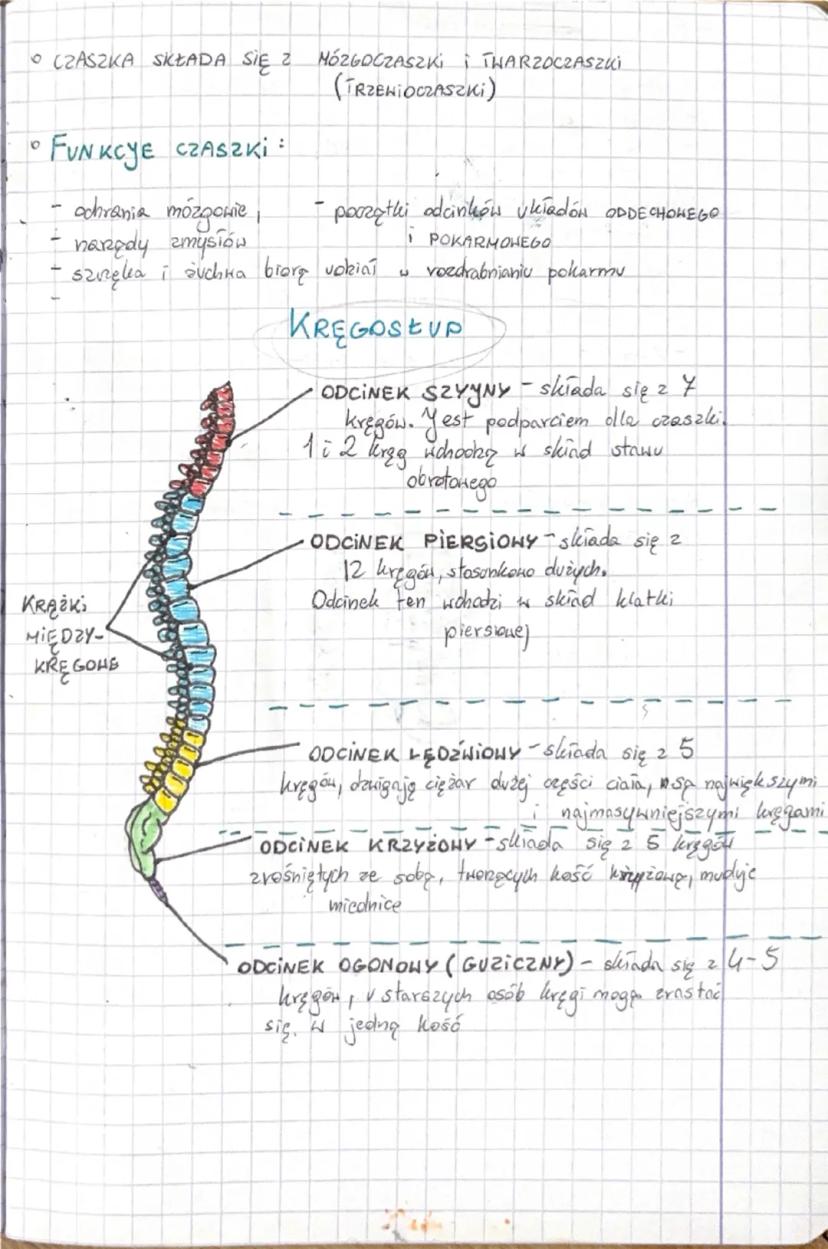 ° CZASZKA SKŁADA SIĘ Z MÓZGOCZASZKI i TWARZOCZASZKI
(TRZEWIOCZASZKI)
° FUNKCJE CZASZKI:
- ochrania mózgowie, - początki odcinków układów ODDECHOWEGO
- narządy zmysłów i POKARMOWEGO
- szczęka i żuchwa biorą udział w rozdrabnianiu pokarmu
-
KRĘGOSŁUP
ODCINEK SZYJNY - składa się z 7
kręgów. Jest podparciem dla czaszki.
1 i 2 kręg wchodzą w skład stawu
obrotowego
ODCINEK PIERSIOWY - składa się z
12 kręgów, stosunkowo dużych.
Odcinek ten wchodzi w skład klatki
piersiowej
KRĄŻKI
MIĘDZY-
KRĘGOWE
ODCINEK LĘDŹWIOWY - składa się z 5
kręgów, dzwigają ciężar dużej części ciała, są największymi
i najmasywniejszymi kręgami
ODCINEK KRZYŻOWY - składa się z 5 kręgów
zrośniętych ze sobą, tworzących kość krzyżową, muduje
miednice
ODCINEK OGONOWY (GUZICZNY) - składa się z 4-5
kręgów, u starszych osób kręgi mogą zrastać
się w jedną kość